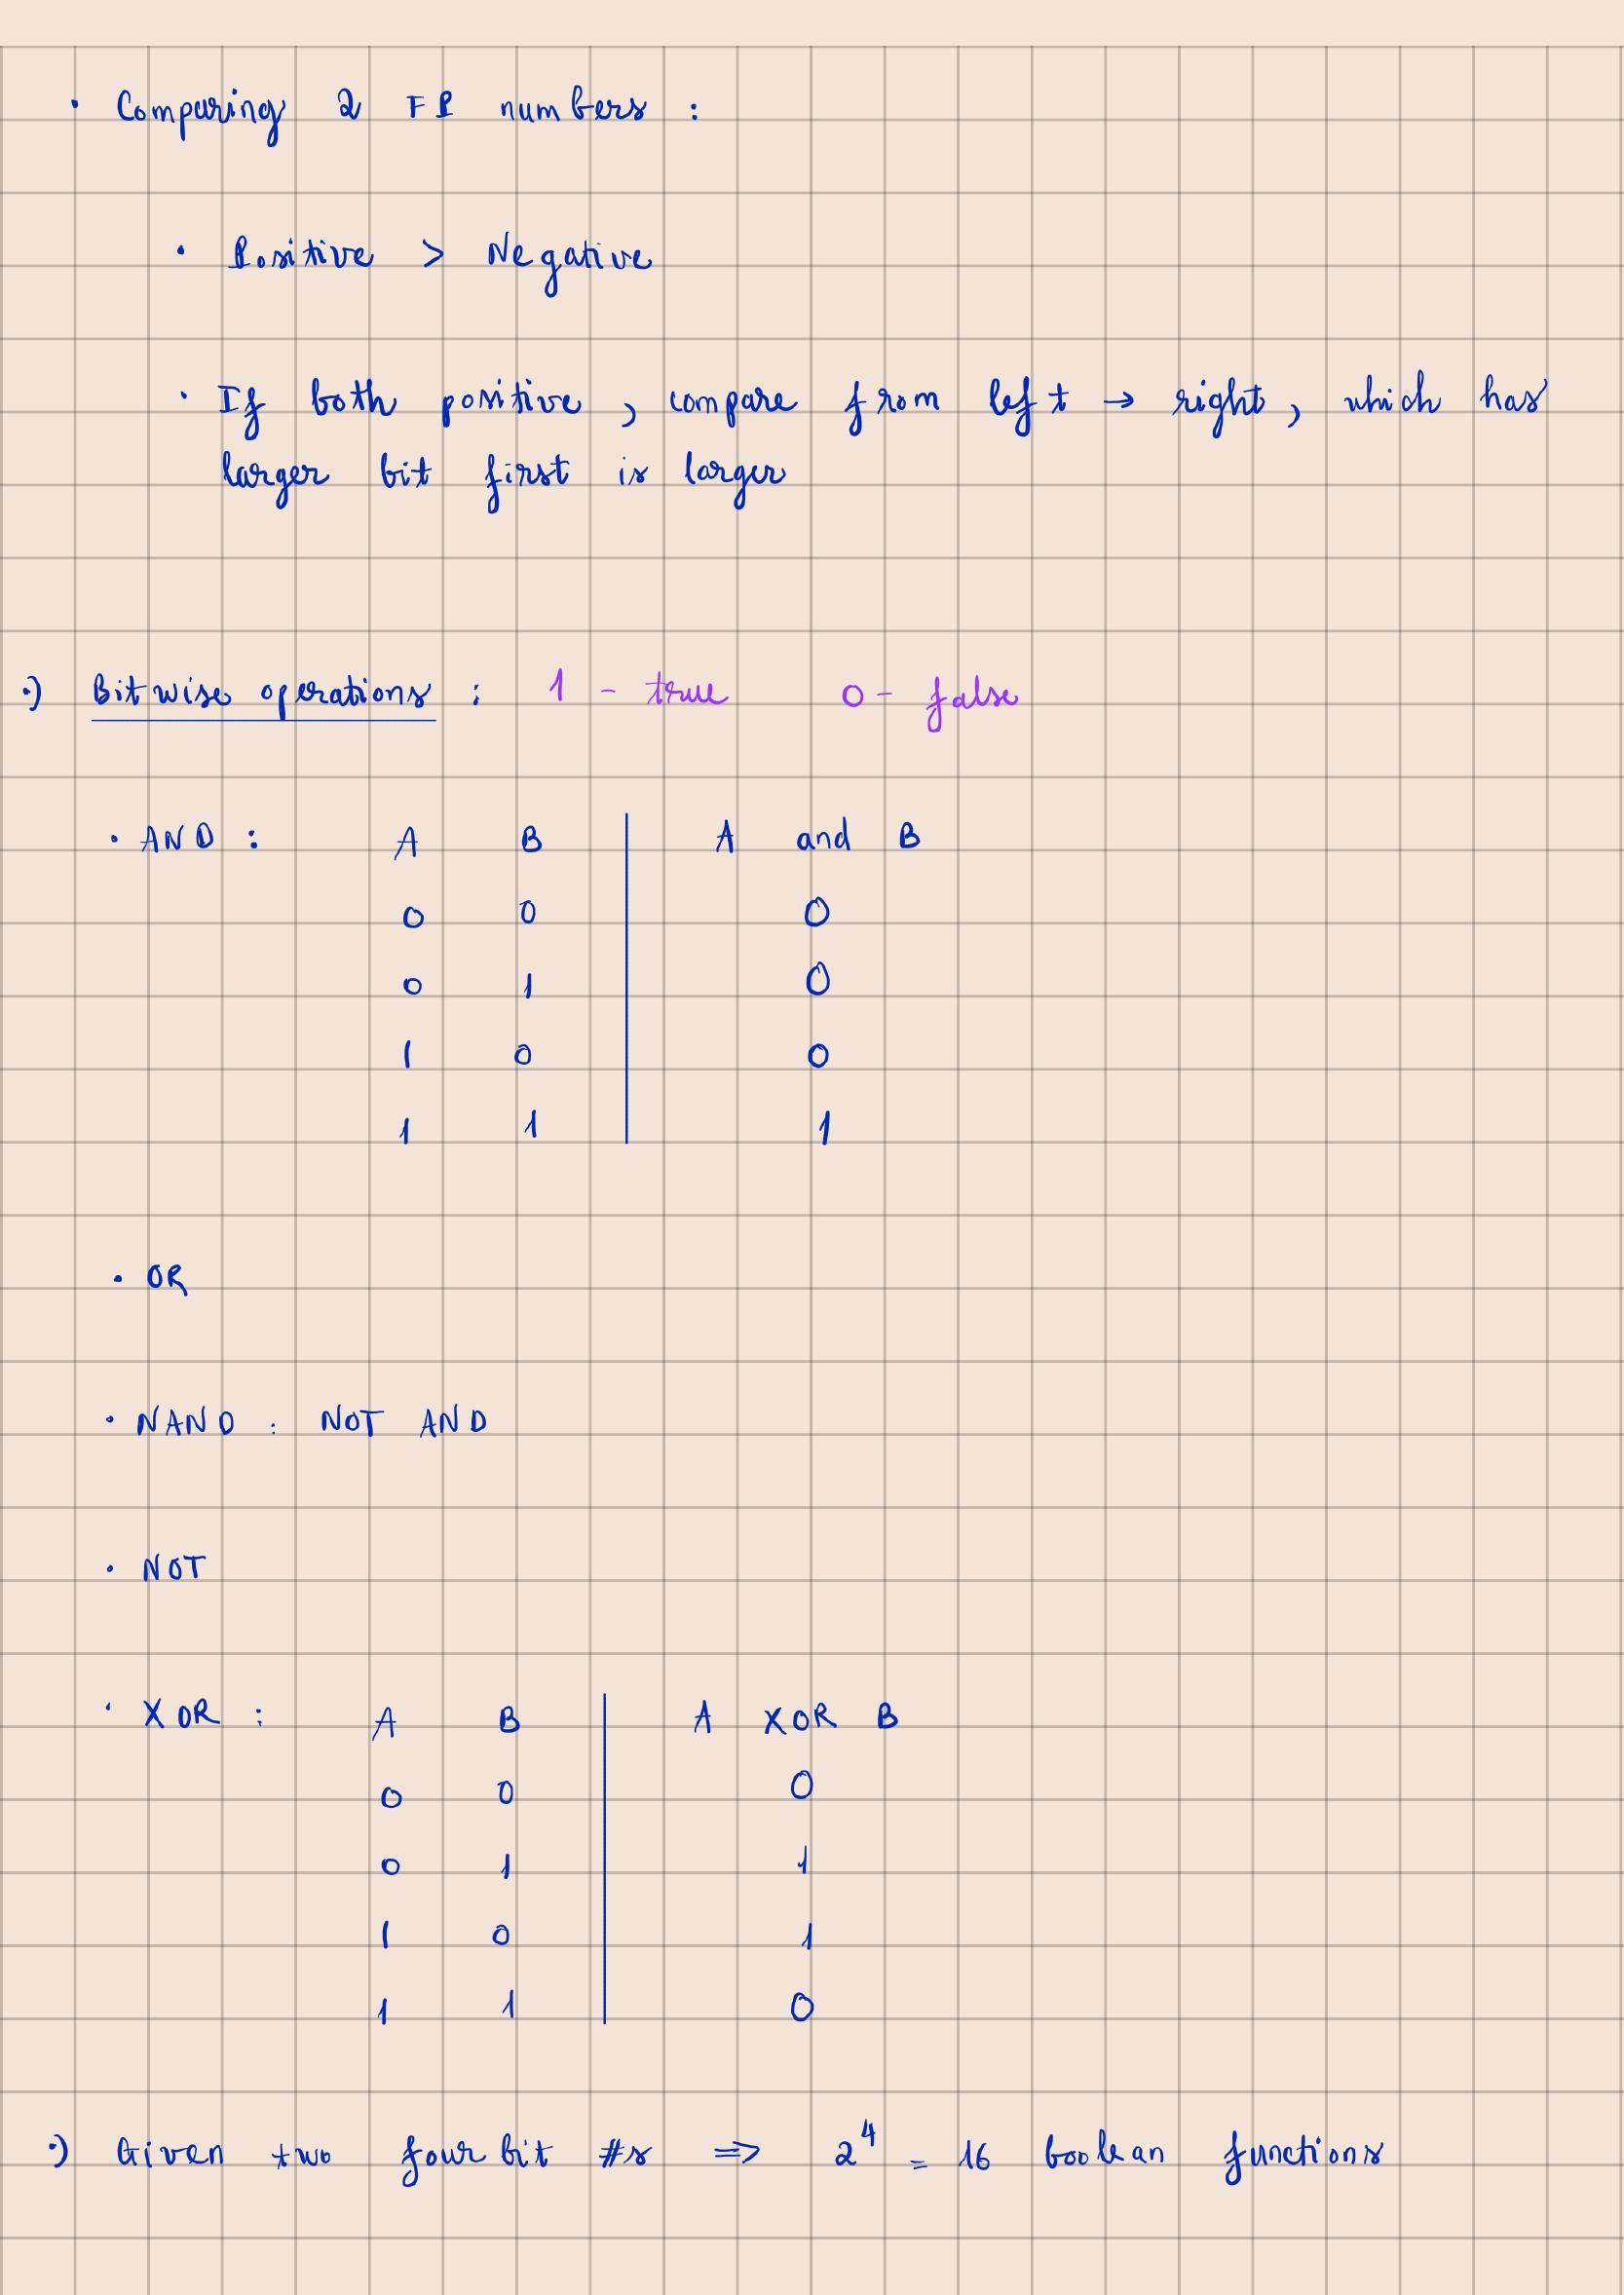 • Comparing 2 FP numbers :
• Positive > Negative
• If both positive , compare from left → right , which has
larger bit first is larger
•) Bitwise operations : 1 - true 0 - false
• AND : A B | A and B
0 0 | 0
0 1 | 0
1 0 | 0
1 1 | 1
• OR
• NAND : NOT AND
• NOT
• XOR : A B | A XOR B
0 0 | 0
0 1 | 1
1 0 | 1
1 1 | 0
•) Given two four bit #s ⇒ 2⁴ = 16 boolean functions